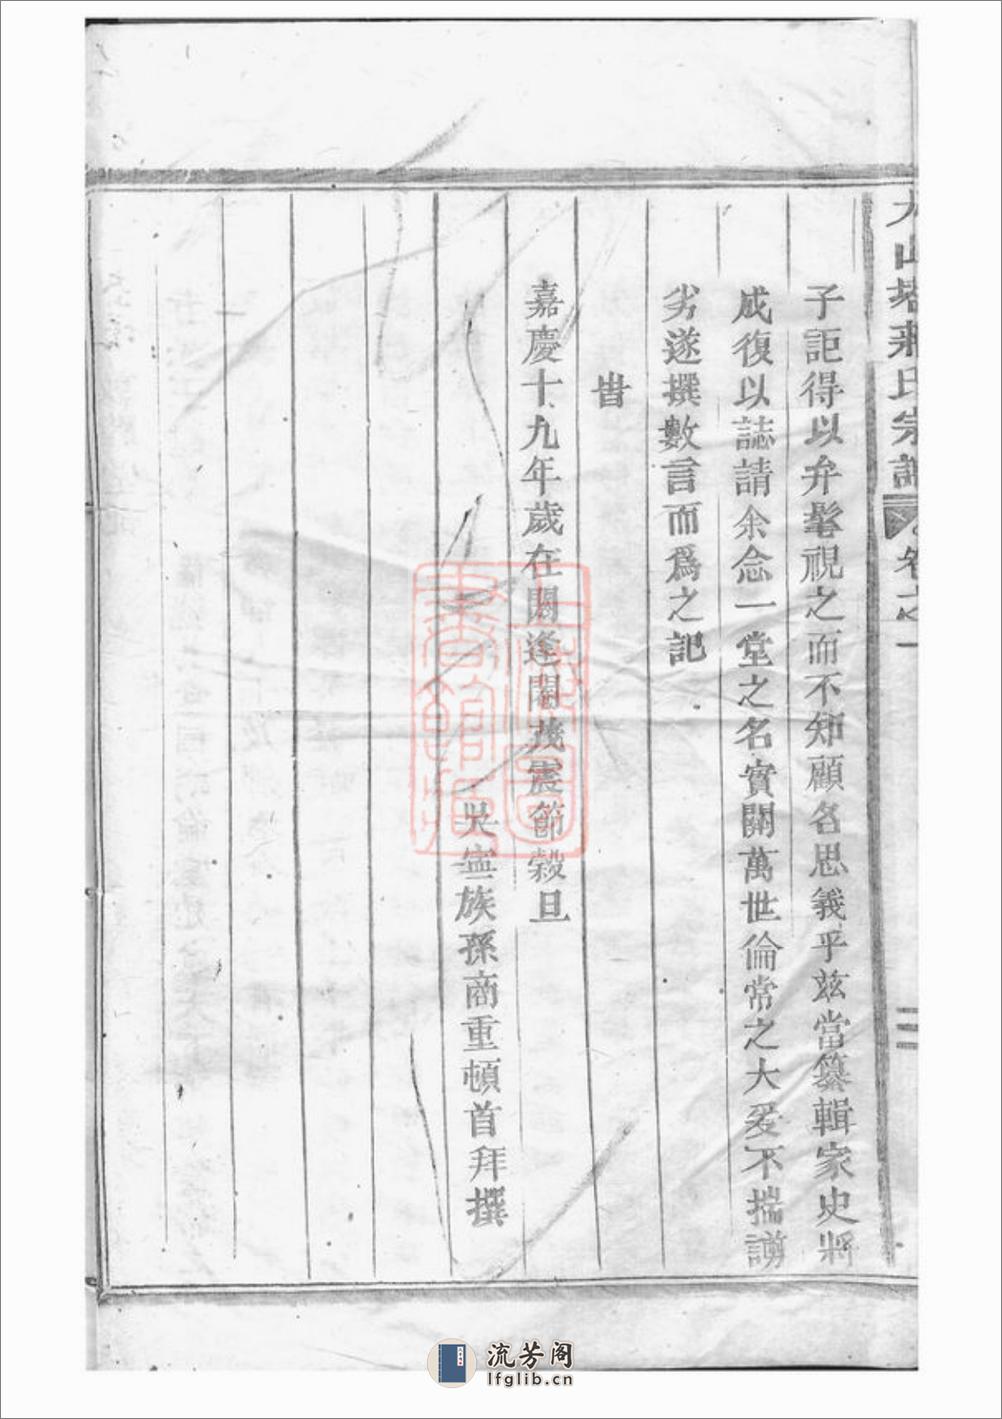 大山塔蔣氏宗譜 卷之一
二
子詎得以弁髦視之而不知顧名思義乎玆當纂輯家史將
成復以誌請余念一堂之名實關萬世倫常之大爰不揣譾
劣遂撰數言而爲之記
旹
嘉慶十九年歲在閼逢閹茂震節穀旦
吳寍族孫商重頓首拜撰
上海圖
書館藏
流芳阁
lfglib.cn